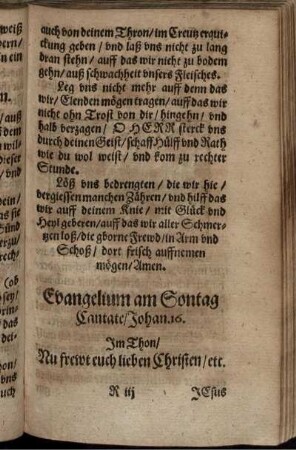 auch von deinem Thron/ im Creutz erqui-
ckung geben/ vnd laß vns nicht zu lang
dran stehn/ auff das wir nicht zu bodem
gehn/ auß schwachheit vnsers Fleisches.
Leg vns nicht mehr auff denn das
wir/ Elenden mögen tragen/ auff das wir
nicht ohn Trost von dir/ hingehn/ vnd
halb verzagen/ O HERR sterck vns
durch deinen Geist/ schaff Hülff vnd Rath
wie du wol weist/ vnd kom zu rechter
Stunde.
Löß vns bedrengten/ die wir hie/
vergiessen manchen Zähren/ vnd hilff das
wir auff deinem Knie/ mit Glück vnd
Heyl geberen/ auff das wir aller Schmer-
tzen loß/ die gborne Frewd/ in Arm vnd
Schoß/ dort frisch auffnemen
mögen/ Amen.
Evangelium am Sontag
Cantate/ Johan. 16.
Im Thon/
Nu frewt euch lieben Christen/ etc.
R iij JEsus